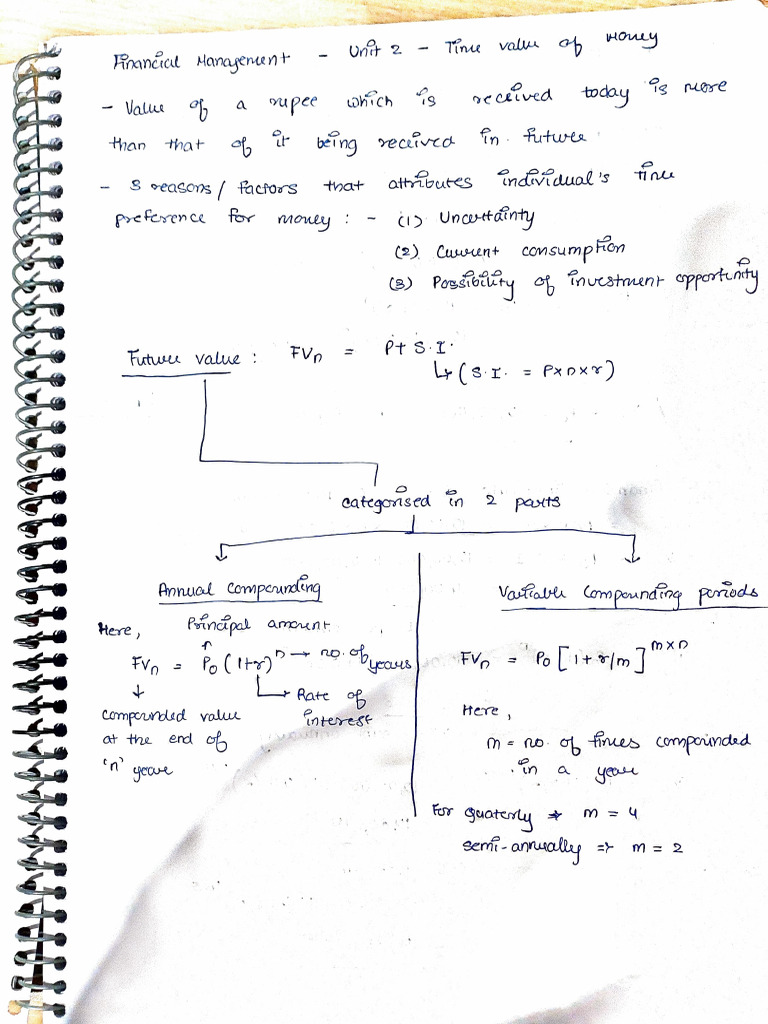 Financial Management - Unit 2 - Time value of Money
- Value of a rupee which is received today is more
than that of it being received in future
- 3 reasons/ factors that attributes individual's time
preference for money : - (1) Uncertainty
(2) Current consumption
(3) Possibility of investment opportunity
Future value : FVn = P+ S.I.
↳ ( S.I. = P×n×r)
categorised in 2 parts
Annual Compounding
Here, Principal amount
FVn = P0 (1+r)^n → no. of years
↓ ↳ Rate of interest
compounded value
at the end of
'n' year
Variable Compounding periods
FVn = P0 [1 + r/m]^m×n
Here,
m = no. of times compounded
in a year
For quaterly ⇒ m = 4
semi-annually ⇒ m = 2